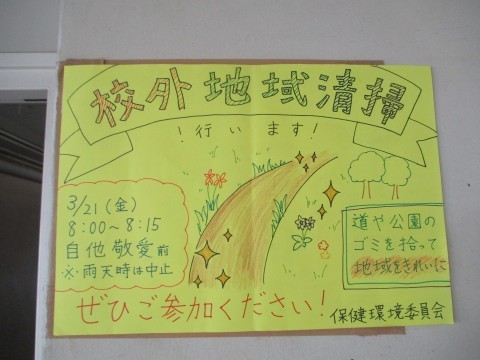 校外地域清掃
！行います！
3/21(金)
8:00～8:15
自他敬愛前
※雨天時は中止
道や公園の
ゴミを拾って
地域をきれいに
ぜひご参加ください！
保健環境委員会